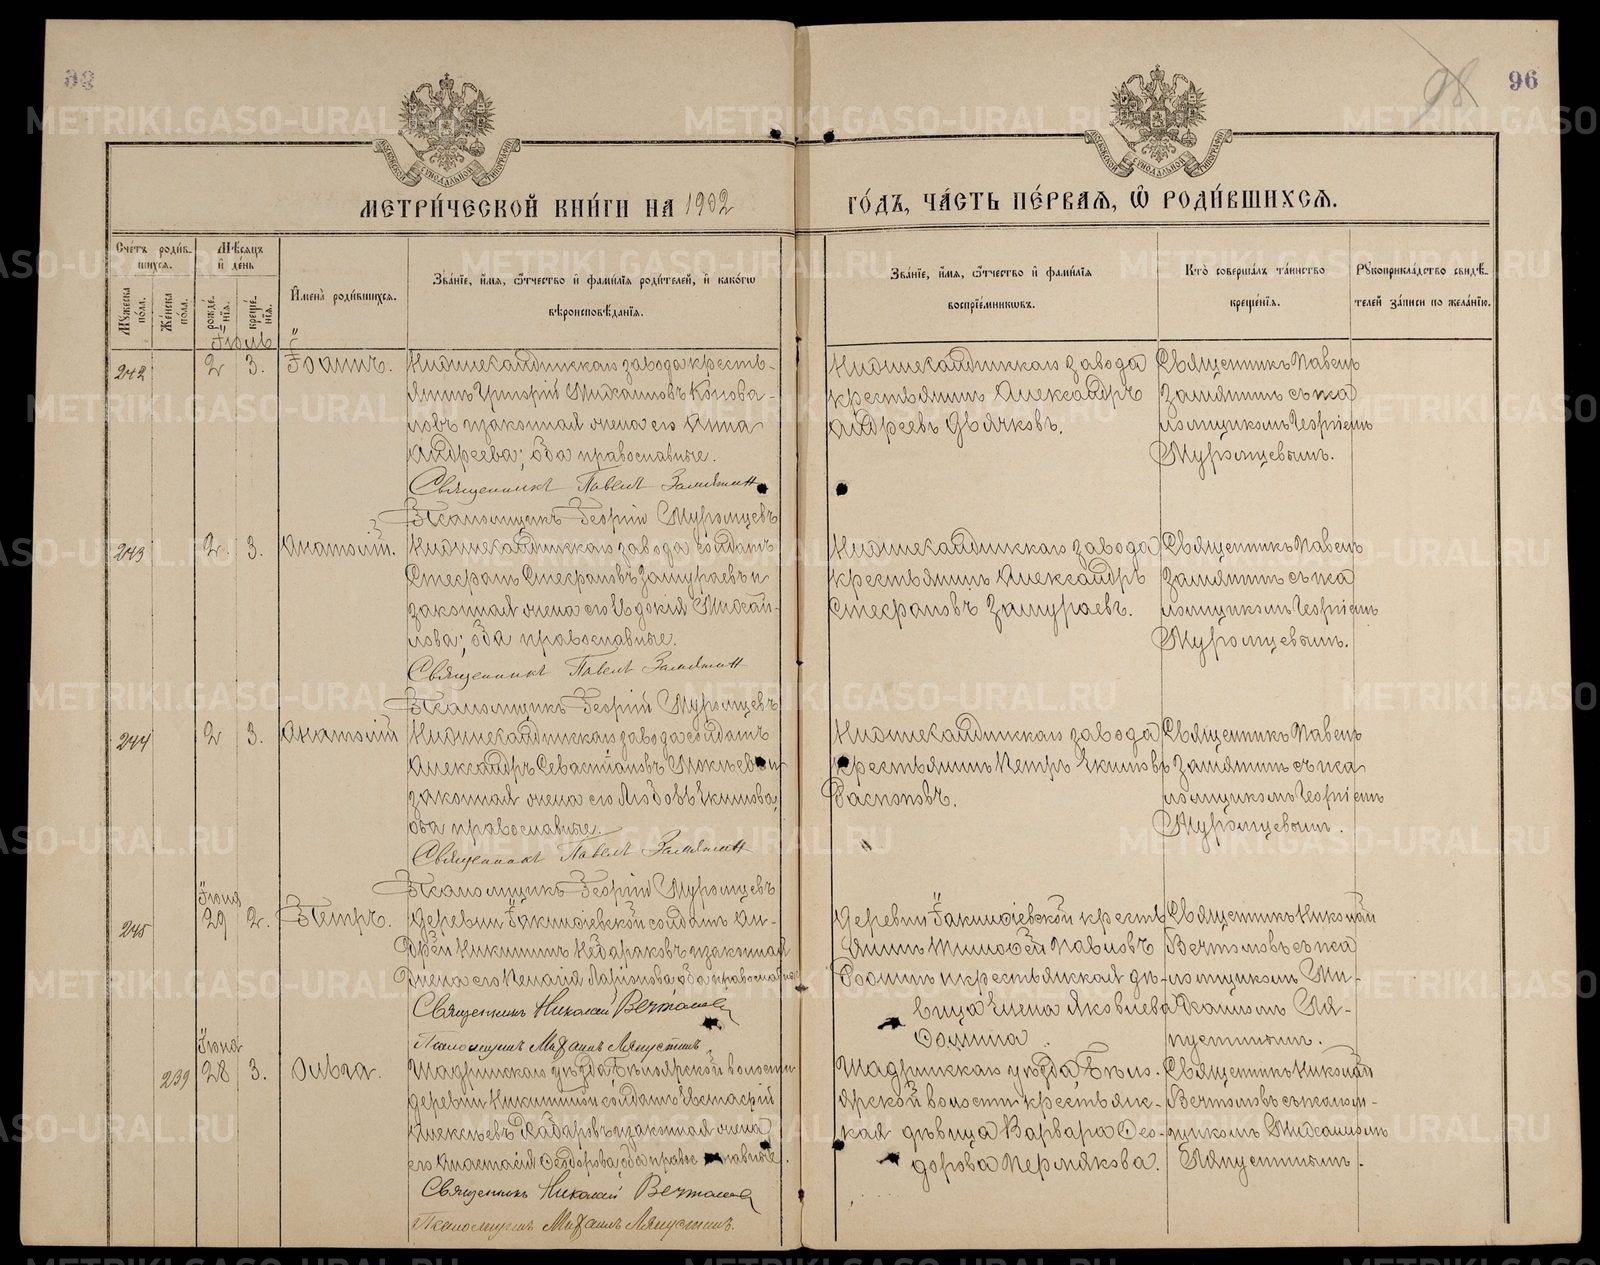 96
98
МЕТРИ́ЧЕСКОЙ КНИ́ГИ НА 1902
ГО́ДЪ, ЧА́СТЬ ПЕ́РВАѦ, Ѽ РОДИ́ВШИХСѦ.
Сче́тъ роди́в-
шихсѧ.
Мꙋ́жеска по́ла.
Же́нска по́ла.
Мѣ́сѧцъ и҆ де́нь
рожде́нїѧ.
креще́нїѧ.
И҆мена̀ роди́вшихсѧ.
Зва́нїе, и҆́мѧ, ѻ҆́тчество и҆ фами́лїѧ роди́телей, и҆ како́гѡ
вѣроисповѣ́данїѧ.
Зва́нїе, и҆́мѧ, ѻ҆́тчество и҆ фами́лїѧ
воспрїе́мникѡвъ.
Кто̀ соверша́лъ та́инство
креще́нїѧ.
Рꙋкоприкла́дство свидѣ́-
телей за́писи по жела́нїю.
Іюль
242 2 3. Іоаннъ.
Нижнекандинскаго завода кресть-
янинъ Григорій Михаиловъ Конова-
ловъ и законная жена его Анна
Андреева; оба православные.
Священникъ Павелъ Замятинъ
Псаломщикъ Георгій Муромцевъ
Нижнекандинскаго завода
крестьянинъ Александръ
Андреевъ Дьячковъ.
Священникъ Павелъ
Замятинъ съ пса
ломщикомъ Георгіемъ
Муромцевымъ.
243 2. 3. Анатолій.
Нижнекандинскаго завода солдатъ
Стефанъ Стефановъ Зашураевъ и
законная жена его Евдокія Михаи-
лова; оба православные.
Священникъ Павелъ Замятинъ
Псаломщикъ Георгій Муромцевъ
Нижнекандинскаго завода
крестьянинъ Александръ
Стефановъ Зашураевъ.
Священникъ Павелъ
Замятинъ съ пса
ломщикомъ Георгіемъ
Муромцевымъ.
244 2 3. Анатолій
Нижнекандинскаго завода солдатъ
Александръ Севастіановъ и
законная жена его Любовь Екимова;
оба православные.
Священникъ Павелъ Замятинъ
Псаломщикъ Георгій Муромцевъ
Нижнекандинскаго завода
крестьянинъ Петръ Екимовъ
Распоповъ.
Священникъ Павелъ
Замятинъ съ пса
ломщикомъ Георгіемъ
Муромцевымъ.
Іюня
245 29 2. Петръ.
Деревни солдатъ Ан-
дрей Никитинъ и законная
жена его Ларіонова оба православные
Священникъ Николай
Псаломщикъ Михаилъ Ляпустинъ.
Деревни кресть
янинъ Тимофей Павловъ
и крестьянская дѣ-
вица Елена Яковлева
Священникъ Николай
съ пса
ломщикомъ Ми-
хаиломъ Ля-
пустинымъ.
Іюня
239 28 3. Ольга.
Шадринскаго уѣзда Бѣлоярской волости
деревни Никитиной солдатъ Евстафій
Алексѣевъ и законная жена
его Анастасія Феодорова, оба православные.
Священникъ Николай
Псаломщикъ Михаилъ Ляпустинъ.
Шадринскаго уѣзда Бѣло-
ярской волости крестьянс-
кая дѣвица Варвара Фео-
дорова Пермякова.
Священникъ Николай
съ псалом-
щикомъ Михаиломъ
Ляпустинымъ.
METRIKI.GASO-URAL.RU